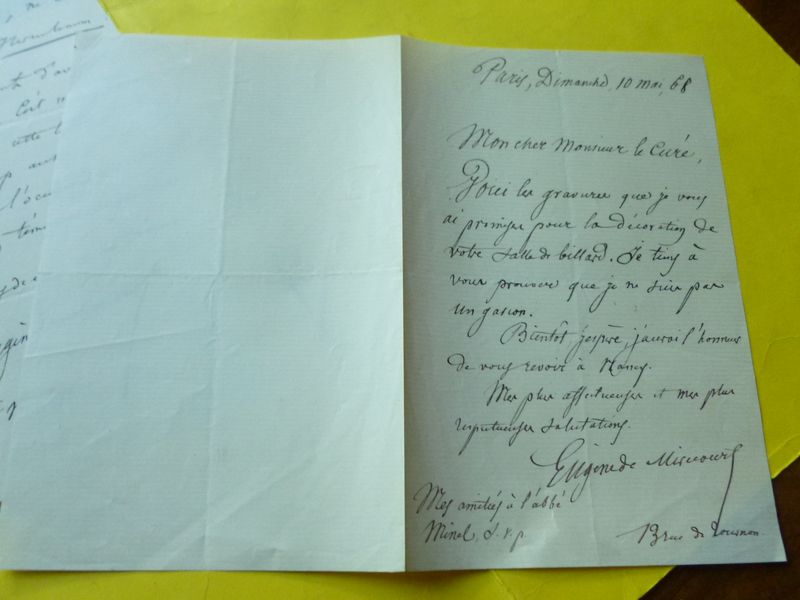 Paris, Dimanche, 10 mai, 68
Mon cher Monsieur le Curé,
Voici les gravures que je vous
ai promises pour la décoration de
votre salle de billard. Je tiens à
vous prouver que je ne suis pas
un gascon.
Bientôt j'espère, j'aurai l'honneur
de vous revoir à Nancy.
Mes plus affectueuses et mes plus
respectueuses salutations.
Eugène de Mirecourt
Mes amitiés à l'abbé
Minel, s.v.p
rue de Tournon